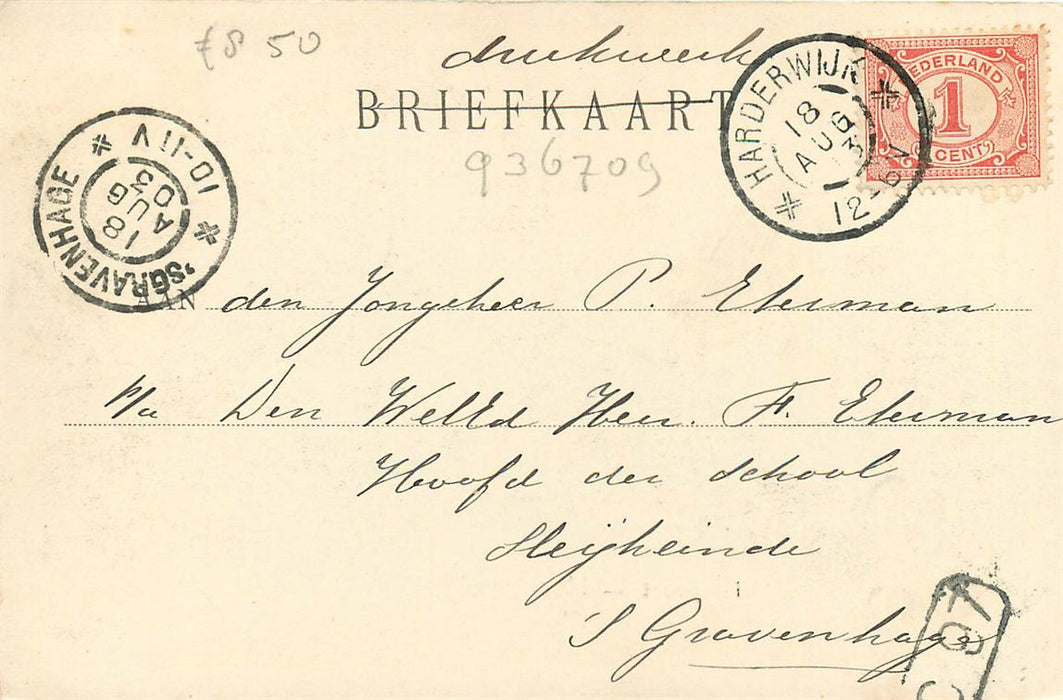 £8 50
drukwerk
BRIEFKAART
936709
HARDERWIJK
18 AUG 03
12-6N
NEDERLAND
1
CENT
'SGRAVENHAGE
18 AUG 03
10-11V
AAN den Jongeheer P. Eterman
p/a Den WelEd Heer. F. Eterman
Hoofd der School
Sleijheinde
S Gravenhage
97